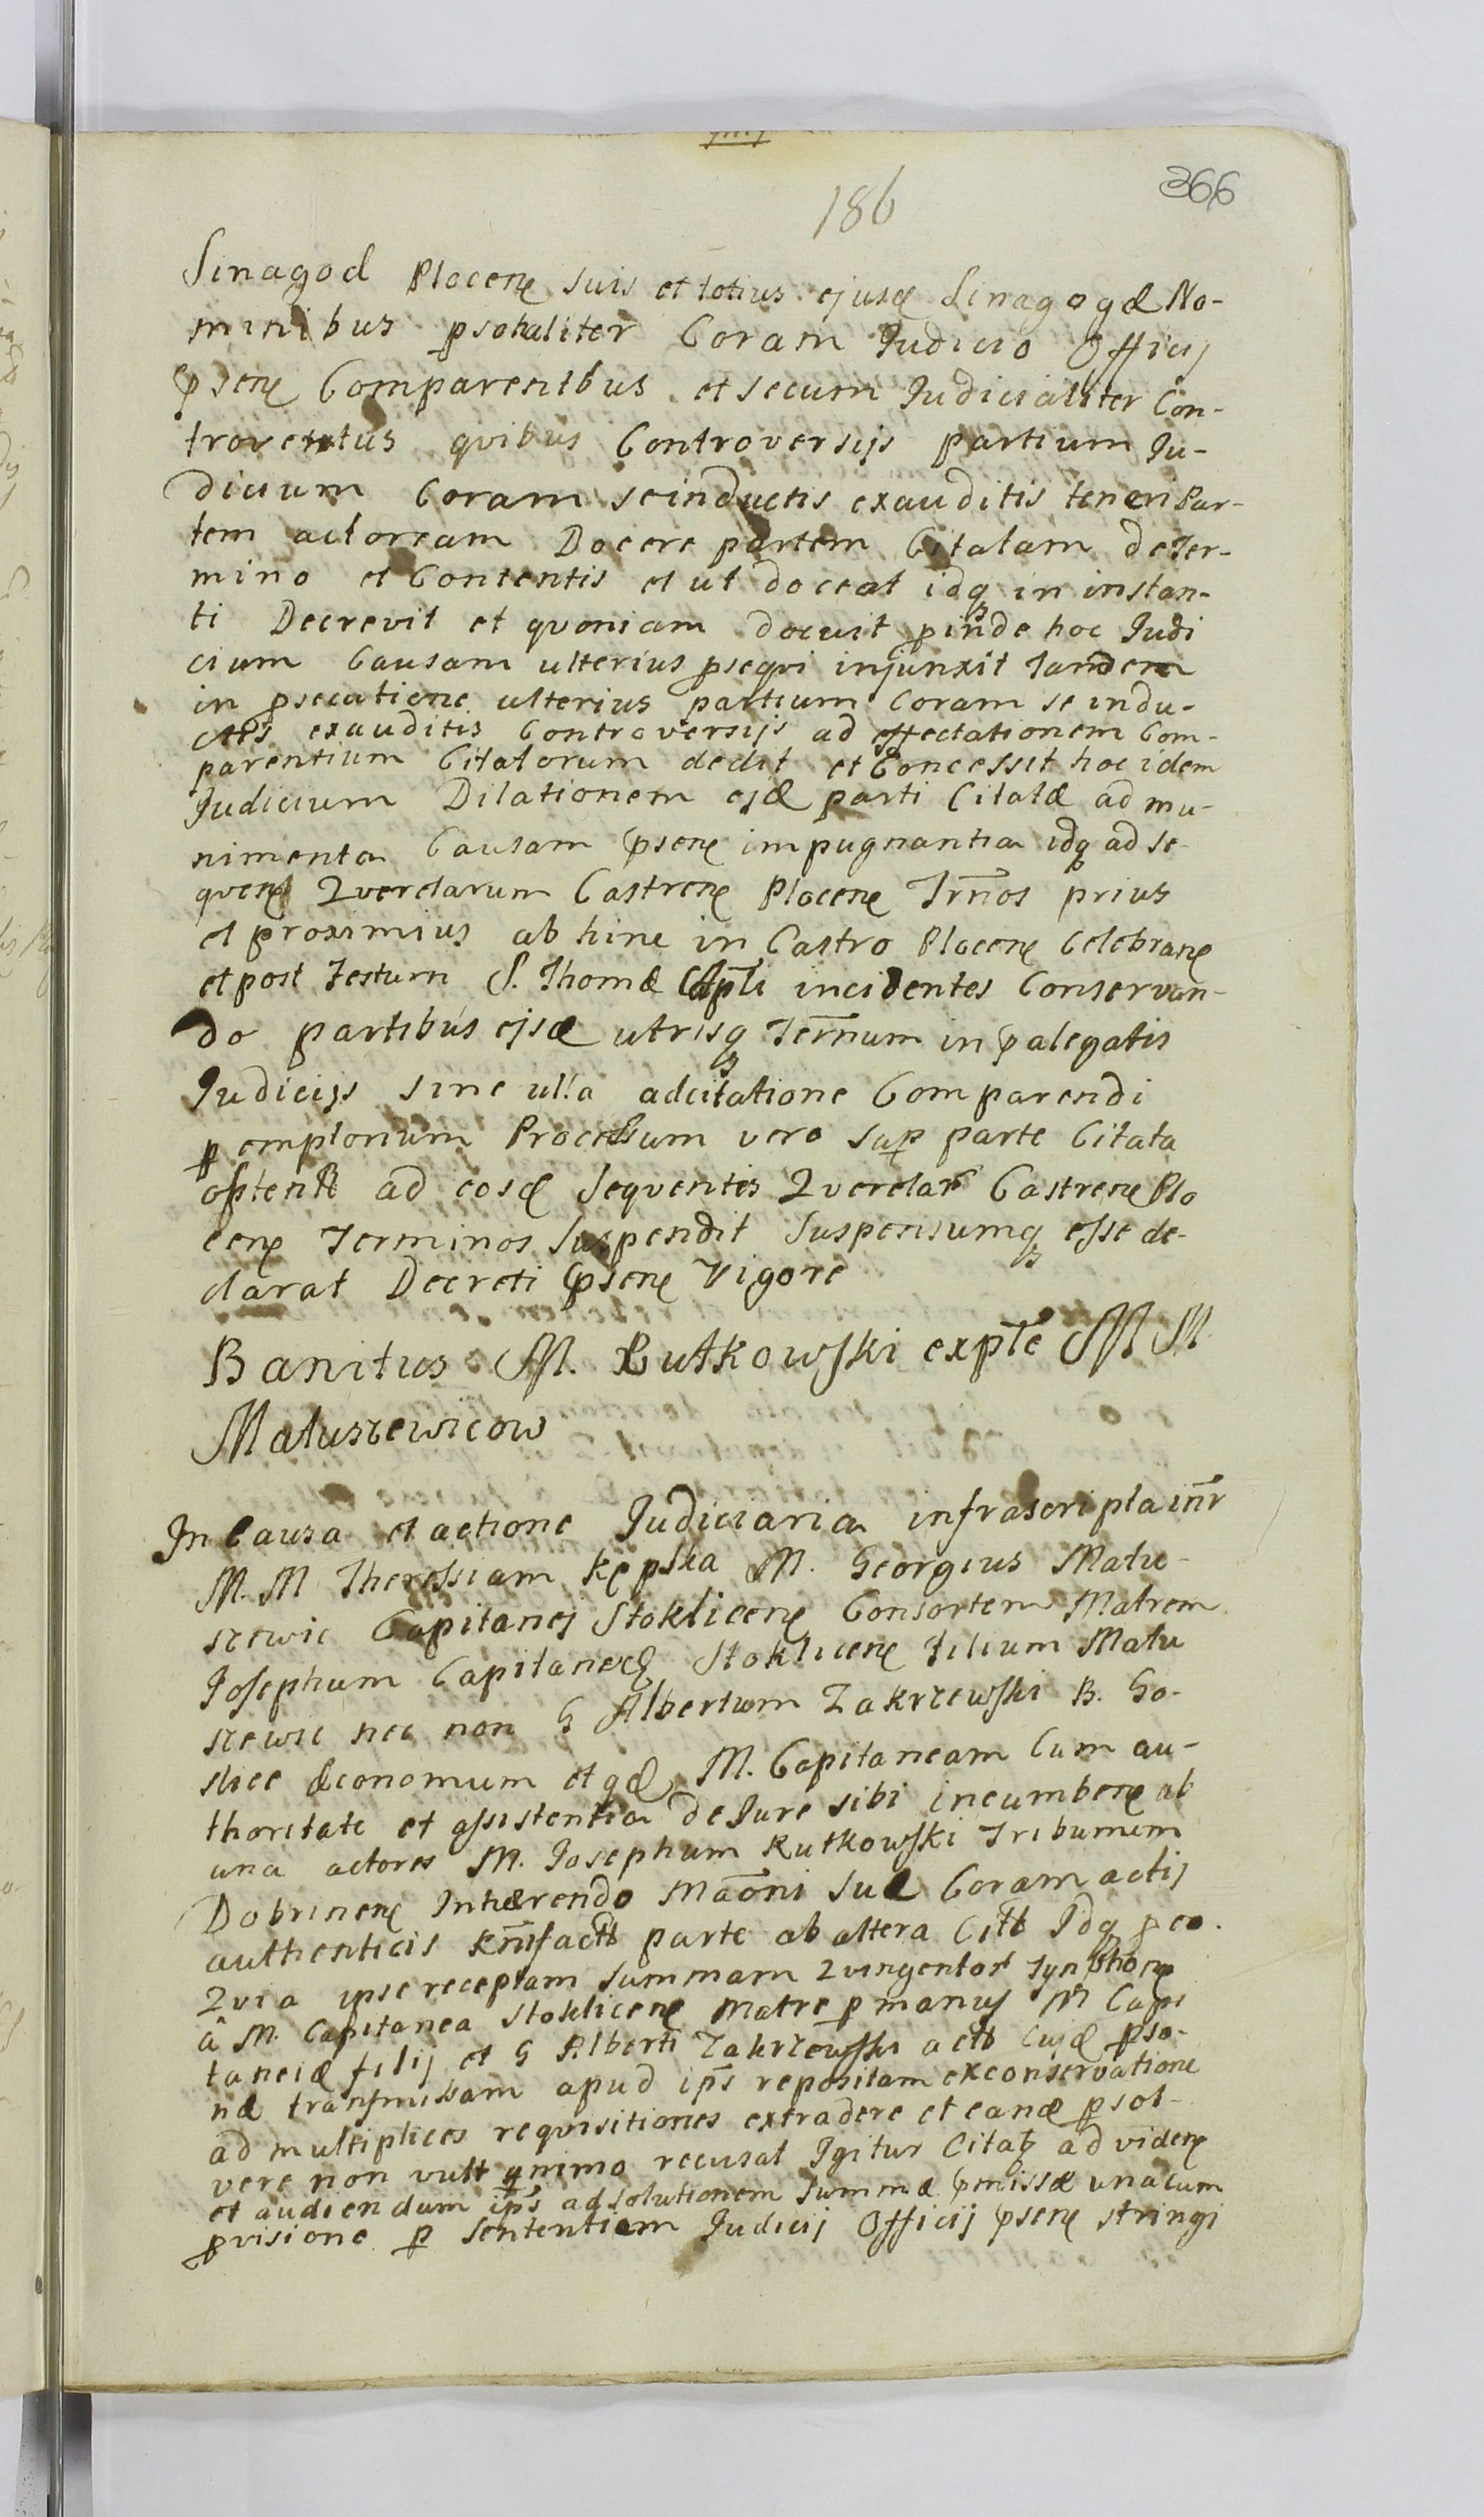 186
366
Sinagod Plocens suis et totius ejusd Sinagogæ No-
minibus psonaliter Coram Judicio Officij
psens Comparentibus et secum Judicialiter Con-
trovertentibus quibus Controversijs partium Ju-
dicium Coram se inductis exauditis teneri Par-
tem actoream Docere partem Citatam de Ter-
mino et Contentis et ut doceat idq in instan-
ti Decrevit et quoniam docuit pinde hoc Judi
cium Causam ulterius psequi injunxit tandem
in psecutione ulterius partium Coram se indu-
ctis exauditis Controversijs ad affectationem Com-
parentium Citatorum dedit et Concessit hoc idem
Judicium Dilationem ejd parti Citatæ ad mu-
nimenta Causam psens impugnantia idq ad se-
quens Querelarum Castrens Plocens Trnos prius
et proximius ab hinc in Castro Plocens Celebrans
et post Festum S. Thomæ Apli incidentes Conservan-
do partibus ejsd utrisq Ternum in palegatis
Judicijs sine ulla adcitatione Comparendi
p emptorium Processum vero sup parte Citata
optent ad eosd Sequentes Querelar Castrens Plo
cens Terminos Suspendit Suspensumq esse de-
clarat Decreti psens Vigore
Banitus M. Rutkowski expte M M
Matuszewicow
In Causa et actione Judiciaria infrascripta inr
M. M Theressiam Kępska M. Georgius Matu-
szewic Capitanej Stoklicens Consortem Matrem
Josephum Capitaneid Stoklicens Filium Matu
szewic nec non G Albertum Zakrzewski B. Go-
slice æconomum et qd M. Capitaneam Cum au-
thoritate et assistentia de Jure sibi incumbens ab
una actores M. Josephum Rutkowski Tribunum
Dobrinens Inhærendo Maoni suæ Coram actis
authenticis factæ parte ab altera Citt Idq p eo.
Quia ipse receptam summam Quingentor Tynphon
â M. Capitanea Stoklicens Matre p manus M Capi
taneidæ filij et G Alberti Zakrzewski act Cujd pso-
næ transmissam apud ips repositam ex conservatione
ad multiplices requisitiones extradere et eand psol-
vere non vult qnimo recusat Igitur Citat ad videns
et audiendum ips ad solutionem summæ pmissæ una cum
pvisione p sententiam Judicij Officij psens stringi